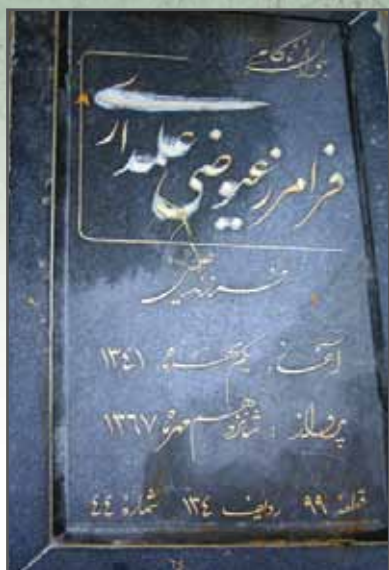 جوان ناکام
فرامرز عیوضی علمداری
فرزند
آغاز: یکم مهر ۱۳۴۱
پرواز: شانزدهم مهر ۱۳۶۷
قطعه ۹۹ ردیف ۱۳٤ شماره ٤٤